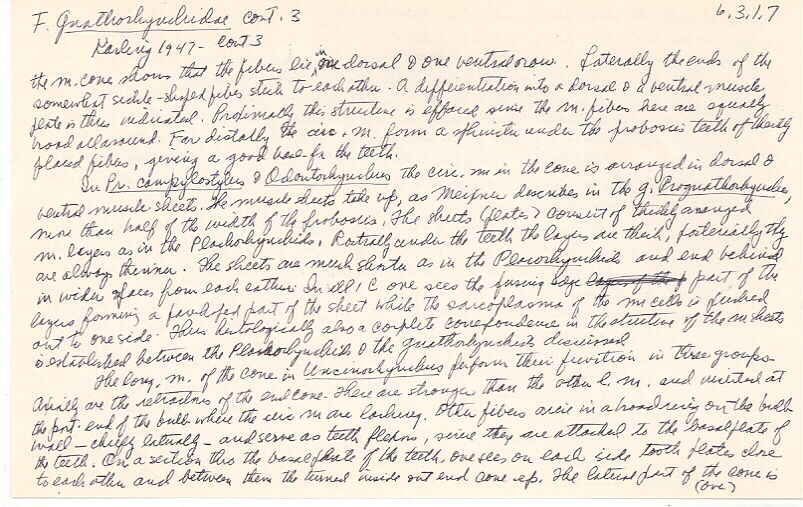 F. Gnathorhynchidae cont. 3 6.3.1.7
Karling 1947 - cont 3
the m. cone shows that the fibers lie in one dorsal & one ventral row. Laterally the ends of the
somewhat sickle-shaped fibers stick to each other. A differentiation into a dorsal & a ventral muscle
plate is thus indicated. Proximally this structure is effaced since the m. fibers here are equally
broad all around. Far distally the circ. m. form a sphincter under the proboscis teeth of thickly
placed fibers, giving a good base for the teeth.
In Pr. campylostylus & Odontorhynchus the circ. m in the cone is arranged in dorsal &
ventral muscle sheets. The muscle sheets take up, as Meixner describes in the g. Prognathorhynchus,
more than half of the width of the proboscis. The sheets (plates) consist of thickly arranged
m. layers as in the Placorhynchids. Rostrally under the teeth the layers are thick, posteriorly they
are always thinner. The sheets are much shorter as in the Placorhynchids and end behind
in wider spaces from each other. In all 1 C one sees the fusing edge part of the
layers forming a paired part of the sheet while the sarcoplasma of the m cells is pushed
out to one side. Thus histologically also a complete correspondence in the structure of the m sheets
is established between the Placorhynchids & the gnathorhynchids discussed.
The long. m. of the cone in Uncinorhynchus perform their function in three groups.
Axially are the retractors of the end cone. These are stronger than the other l. m. and united at
the post. end of the bulb where the circ m are lacking. Other fibers arise in a broad ring on the bulb
wall - chiefly laterally - and serve as teeth flexors, since they are attached to the basal plate of
the teeth. On a section thru the basal plate of the teeth, one sees on each side tooth plates close
to each other and between them the turned inside out end cone ep. The lateral part of the cone is
(over)